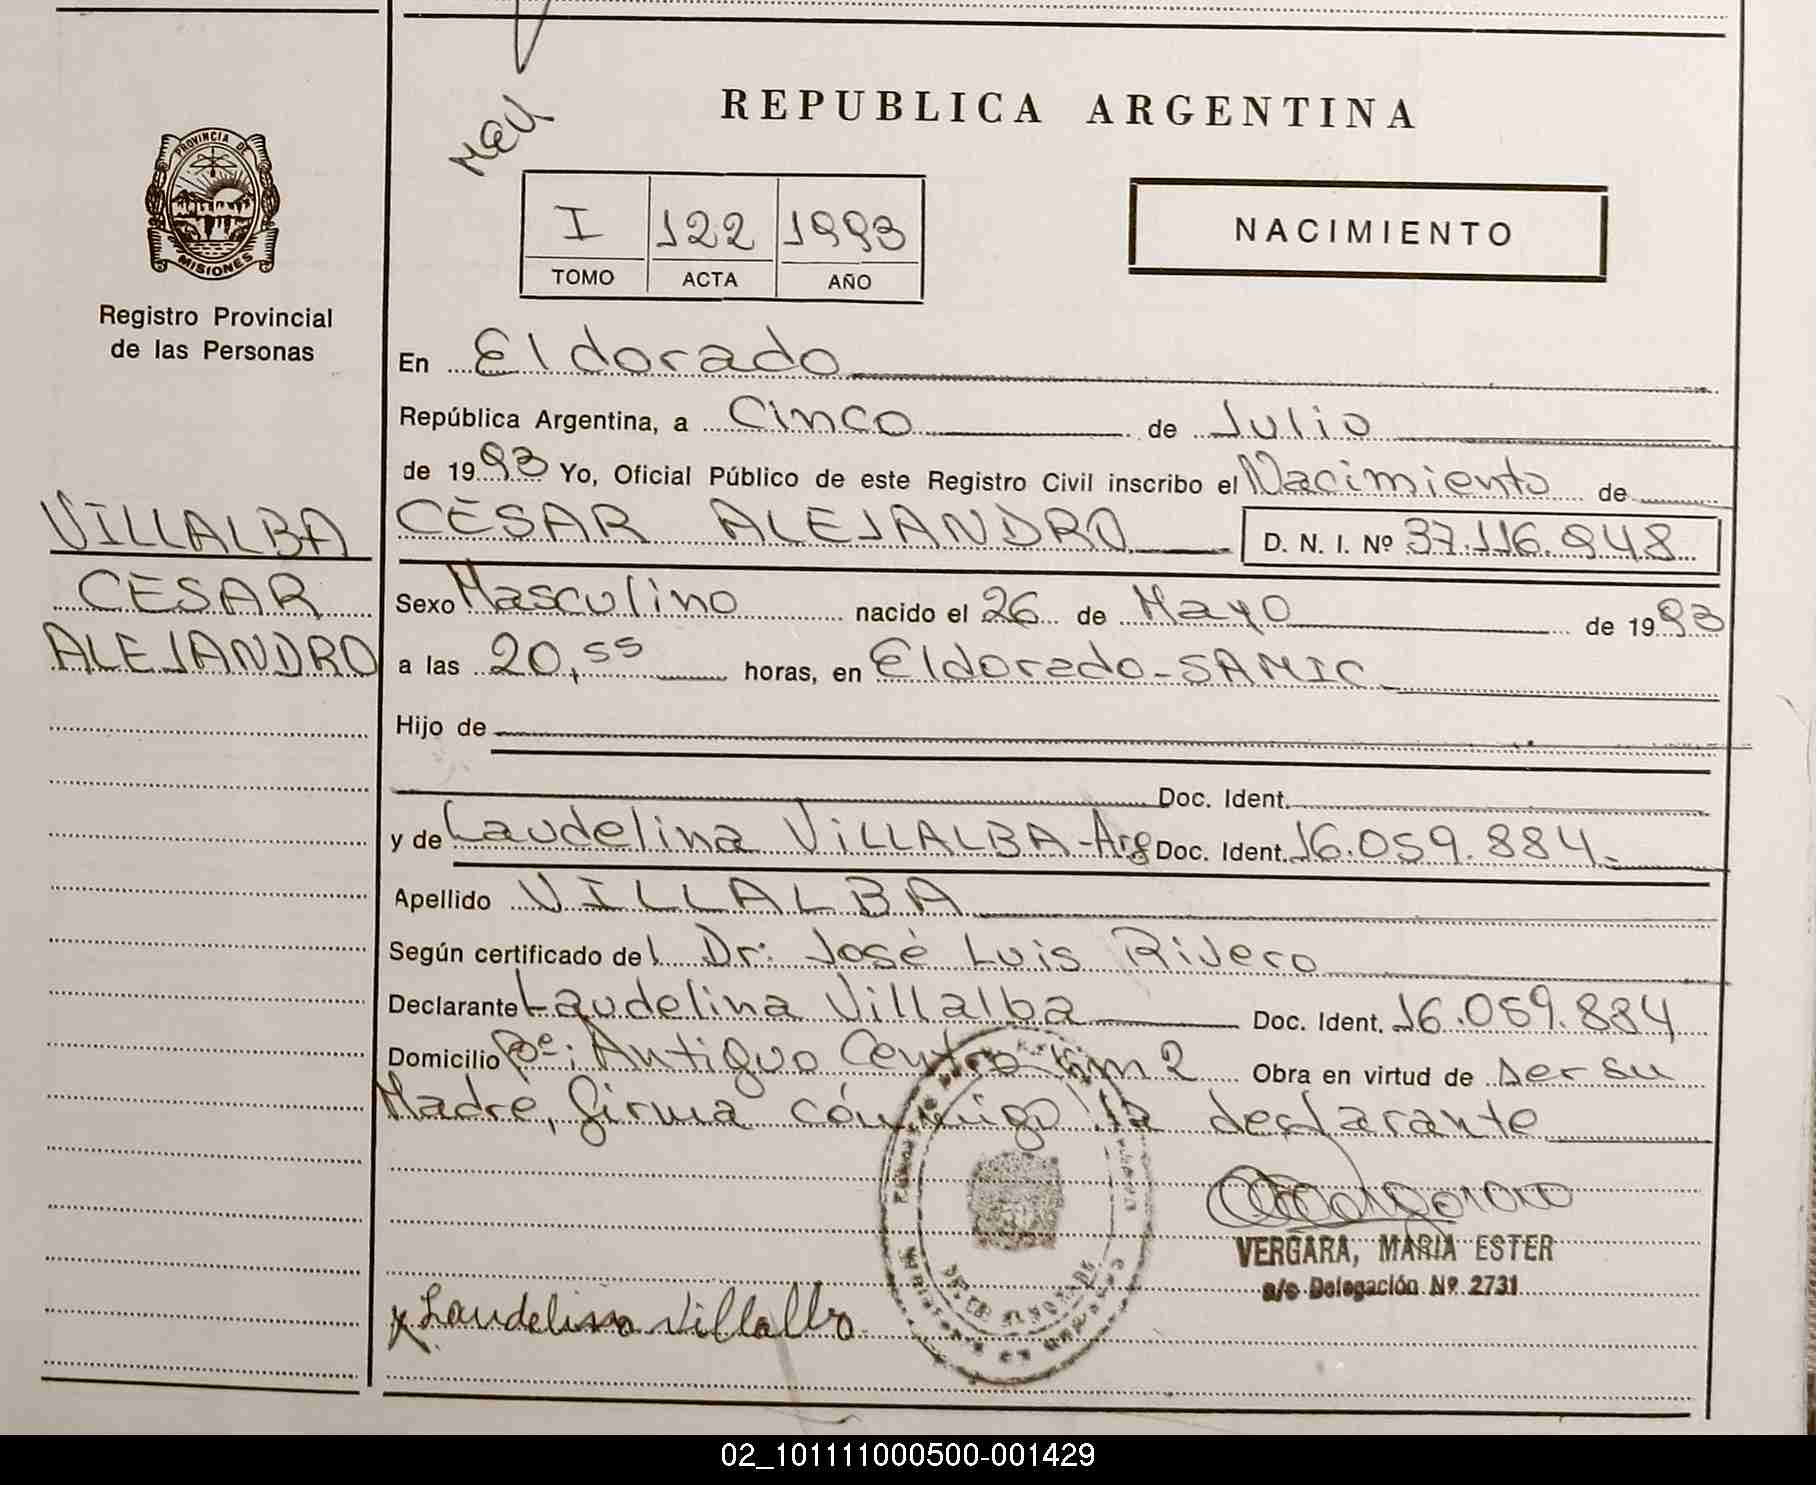 REPUBLICA ARGENTINA
PROVINCIA DE
MISIONES
Registro Provincial
de las Personas
I 122 1993
TOMO ACTA AÑO
NACIMIENTO
En Eldorado
República Argentina, a Cinco de Julio
de 1993 Yo, Oficial Público de este Registro Civil inscribo el Nacimiento de
VILLALBA
CESAR
ALEJANDRO
CÉSAR ALEJANDRO D. N. I. Nº 37.116.948
Sexo Masculino nacido el 26 de Mayo de 1993
a las 20,55 horas, en Eldorado-SAMIC
Hijo de
Doc. Ident.
y de Laudelina VILLALBA-Arg Doc. Ident. 16.059.884.
Apellido VILLALBA
Según certificado del Dr: José Luis Rivero
Declarante Laudelina Villalba Doc. Ident. 16.059.884
Domicilio Bº: Antiguo Centro Km 2 Obra en virtud de ser su
Madre, firma conmigo la declarante
VERGARA, MARIA ESTER
a/c Delegación Nº 2731
x Laudelina Villalba
02_101111000500-001429